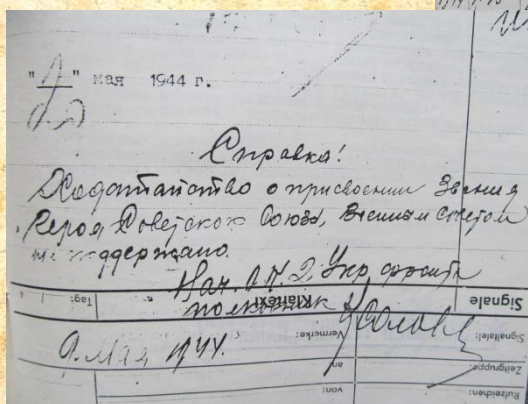 мая 1944 г.
Справка!
Ходатайство о присвоении звания
Героя Советского Союза, Военным советом
не поддержано.
Нач. О.К. 2 Укр фронта
полковник
9. Мая 1944.
Signale
Klartext
Tag:
Signaltafel:
Vermerke:
Zeitgruppe:
an:
Rufzeichen:
von: